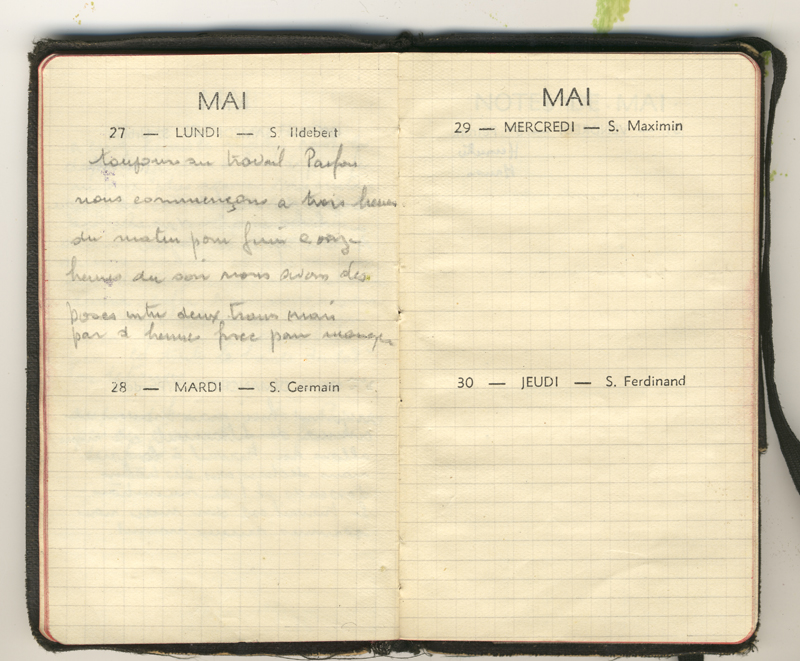 MAI
27 — LUNDI — S Ildebert
toujours au travail. Parfois
nous commençons a trois heures
du matin pour finir a onze
heures du soir nous avons des
poses entre deux trains mais
pas d heures fixe pour manger
28 — MARDI — S. Germain
MAI
29 — MERCREDI — S. Maximin
30 — JEUDI — S. Ferdinand